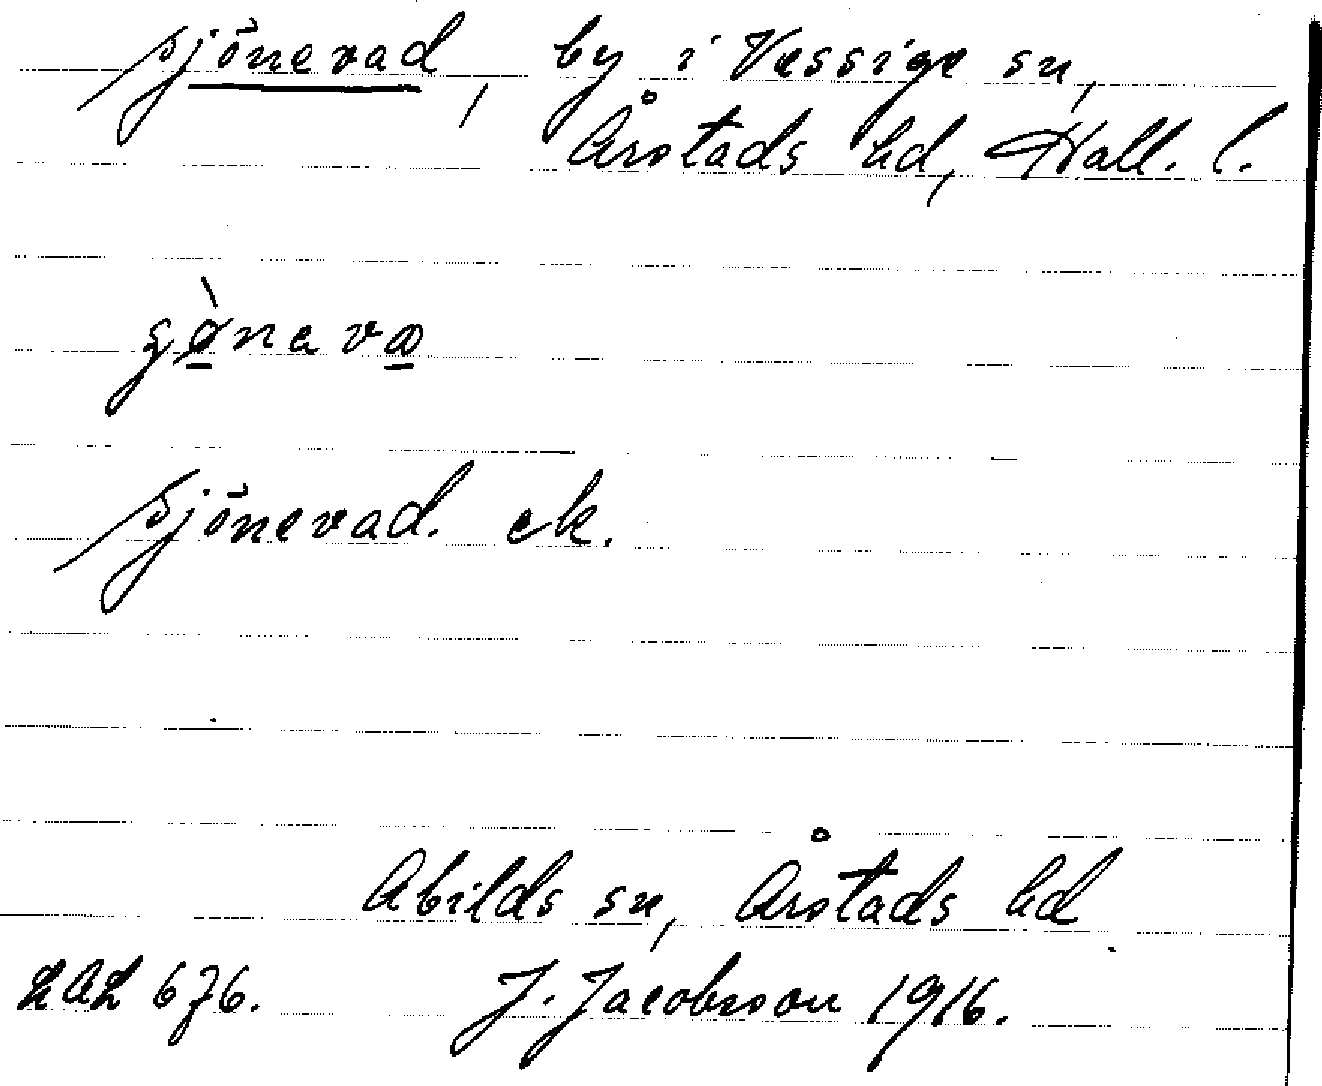 Sjönevad, by i Vessige sn,
Årstads hd, Hall. l.
Sjönevad. ek.
Abilds sn, Årstads hd
LAL 676. J. Jacobsson 1916.